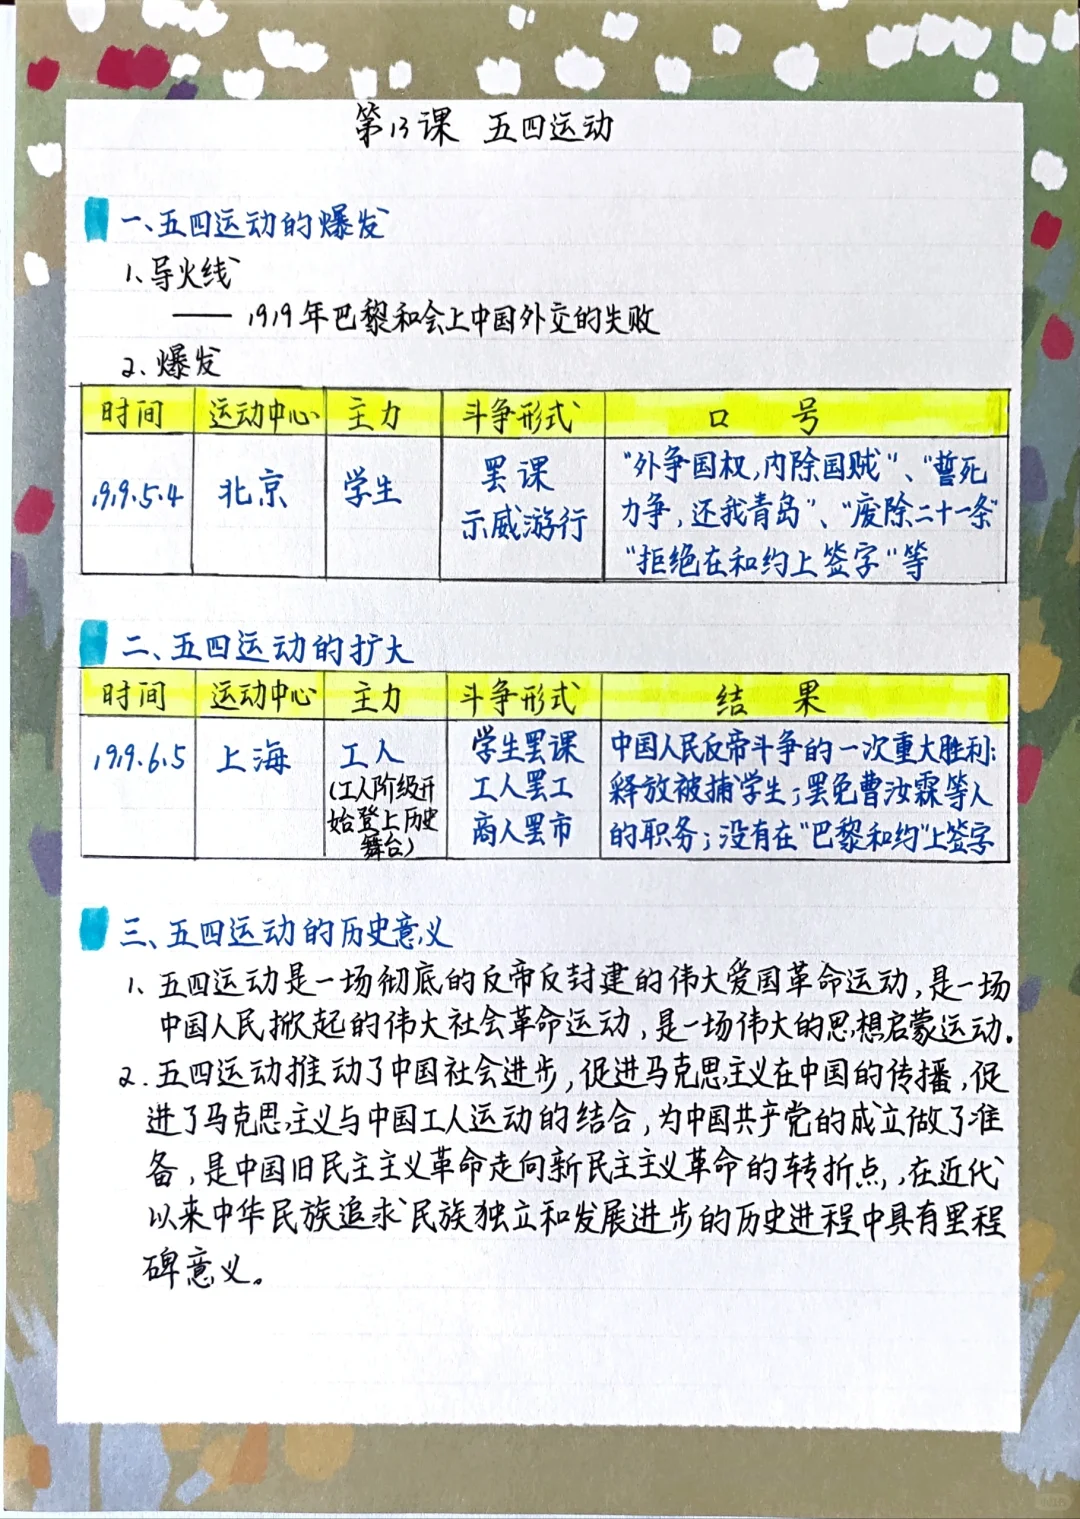 第13课 五四运动
一、五四运动的爆发
1、导火线
—— 1919年巴黎和会上中国外交的失败
2、爆发
时间 运动中心 主力 斗争形式 口号
1919.5.4 北京 学生 罢课 示威游行 "外争国权,内除国贼"、"誓死
力争,还我青岛"、"废除二十一条"
"拒绝在和约上签字"等
二、五四运动的扩大
时间 运动中心 主力 斗争形式 结果
1919.6.5 上海 工人 学生罢课 中国人民反帝斗争的一次重大胜利:
(工人阶级开 工人罢工 释放被捕学生;罢免曹汝霖等人
始登上历史 商人罢市 的职务;没有在"巴黎和约"上签字
舞台)
三、五四运动的历史意义
1、五四运动是一场彻底的反帝反封建的伟大爱国革命运动,是一场
中国人民掀起的伟大社会革命运动,是一场伟大的思想启蒙运动。
2.五四运动推动了中国社会进步,促进马克思主义在中国的传播,促
进了马克思主义与中国工人运动的结合,为中国共产党的成立做了准
备,是中国旧民主主义革命走向新民主主义革命的转折点,在近代
以来中华民族追求民族独立和发展进步的历史进程中具有里程
碑意义。